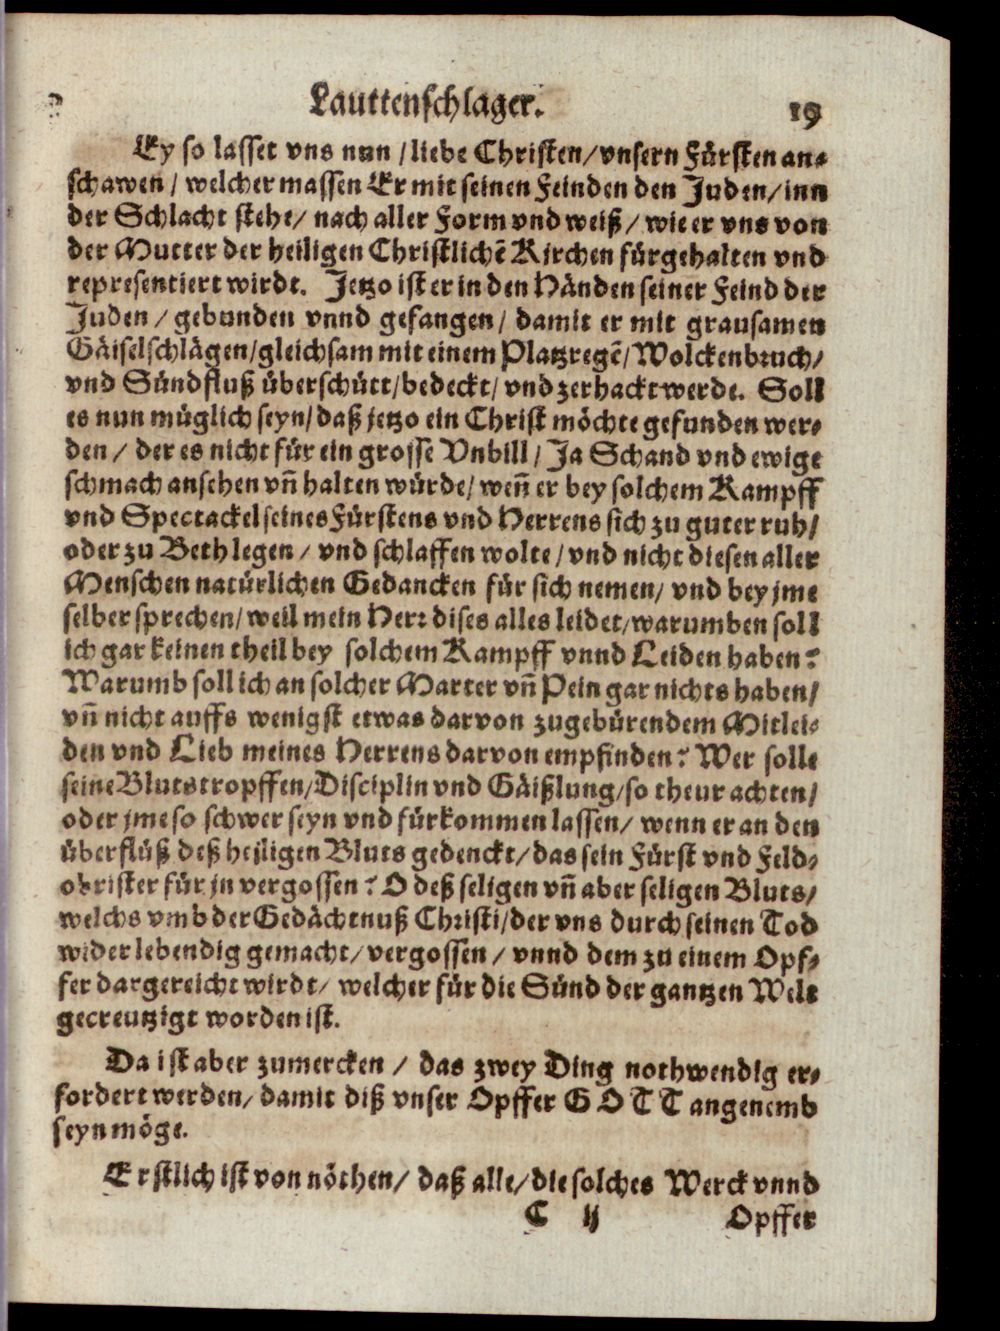 Lauttenschlager. 19
Ey so lasset vns nun / liebe Christen / vnsern Fürsten an⸗
schawen / welcher massen Er mit seinen Feinden den Juden / inn
der Schlacht stehe / nach aller Form vnd weiß / wie er vns von
der Mutter der heiligen Christlichẽ Kirchen fürgehalten vnd
representiert wirdt. Jetzo ist er in den Händen seiner Feind der
Juden / gebunden vnnd gefangen / damit er mit grausamen
Gäiselschlägen / gleichsam mit einem Platzregẽ / Wolckenbruch /
vnd Sündfluß überschütt / bedeckt / vnd zerhackt werde. Soll
es nun müglich seyn / daß jetzo ein Christ möchte gefunden wer⸗
den / der es nicht für ein grosse Vnbill / Ja Schand vnd ewige
schmach ansehen vñ halten würde / weñ er bey solchem Kampff
vnd Spectackel seines Fürstens vnd Herrens sich zu guter ruh /
oder zu Beth legen / vnd schlaffen wolte / vnd nicht diesen aller
Menschen natürlichen Gedancken für sich nemen / vnd bey jme
selber sprechen / weil mein Herr dises alles leidet / warumben soll
ich gar keinen theil bey solchem Kampff vnnd Leiden haben?
Warumb soll ich an solcher Marter vñ Pein gar nichts haben /
vñ nicht auffs wenigst etwas darvon zugebürendem Mitlei⸗
den vnd Lieb meines Herrens darvon empfinden? Wer solle
seine Blutstropffen / Disciplin vnd Gäißlung / so theur achten /
oder jme so schwer seyn vnd fürkommen lassen / wenn er an den
überflüß deß heiligen Bluts gedenckt / das sein Fürst vnd Feld⸗
obrister für jn vergossen? O deß seligen vñ aber seligen Bluts /
welchs vmb der Gedächtnuß Christi / der vns durch seinen Tod
wider lebendig gemacht / vergossen / vnnd dem zu einem Opf⸗
fer dargereicht wirdt / welcher für die Sünd der gantzen Welt
gecreutzigt worden ist.
Da ist aber zumercken / das zwey Ding nothwendig er⸗
fordert werden / damit diß vnser Opffer GOTT angenemb
seyn möge.
Erstlich ist von nöthen / daß alle / die solches Werck vnnd
C ij Opffer